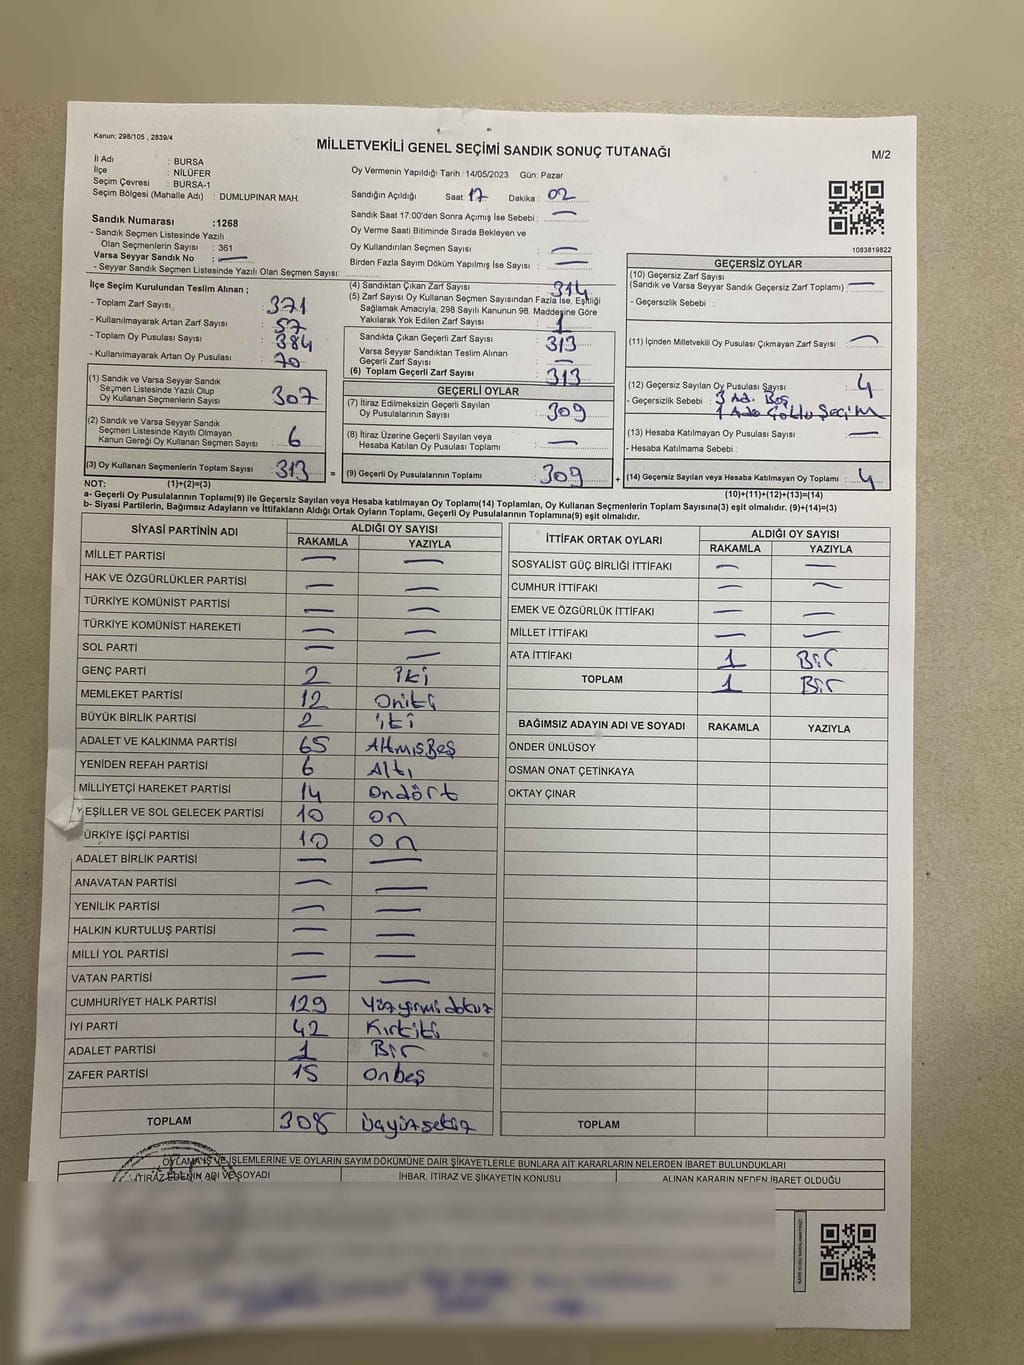 Kanun; 298/105 , 2839/4
MİLLETVEKİLİ GENEL SEÇİMİ SANDIK SONUÇ TUTANAĞI
M/2
İl Adı : BURSA
İlçe : NİLÜFER
Seçim Çevresi : BURSA-1
Seçim Bölgesi (Mahalle Adı) : DUMLUPINAR MAH.
Oy Vermenin Yapıldığı Tarih : 14/05/2023 Gün: Pazar
Sandığın Açıldığı Saat: 17 Dakika : 02
Sandık Saat 17:00'den Sonra Açımış İse Sebebi : —
Oy Verme Saati Bitiminde Sırada Bekleyen ve
Oy Kullandırılan Seçmen Sayısı : —
Birden Fazla Sayım Döküm Yapılmış İse Sayısı : —
Sandık Numarası :1268
- Sandık Seçmen Listesinde Yazılı
Olan Seçmenlerin Sayısı : 361
Varsa Seyyar Sandık No : —
- Seyyar Sandık Seçmen Listesinde Yazılı Olan Seçmen Sayısı:
1083819822
İlçe Seçim Kurulundan Teslim Alınan ;
- Toplam Zarf Sayısı : 371
- Kullanılmayarak Artan Zarf Sayısı : 57
- Toplam Oy Pusulası Sayısı : 384
- Kullanılmayarak Artan Oy Pusulası : 70
(1) Sandık ve Varsa Seyyar Sandık
Seçmen Listesinde Yazılı Olup
Oy Kullanan Seçmenlerin Sayısı : 307
(2) Sandık ve Varsa Seyyar Sandık
Seçmen Listesinde Kayıtlı Olmayan
Kanun Gereği Oy Kullanan Seçmen Sayısı : 6
(3) Oy Kullanan Seçmenlerin Toplam Sayısı : 313
(4) Sandıktan Çıkan Zarf Sayısı : 314
(5) Zarf Sayısı Oy Kullanan Seçmen Sayısından Fazla İse, Eşitliği
Sağlamak Amacıyla; 298 Sayılı Kanunun 98. Maddesine Göre
Yakılarak Yok Edilen Zarf Sayısı : 1
Sandıkta Çıkan Geçerli Zarf Sayısı : 313
Varsa Seyyar Sandıktan Teslim Alınan
Geçerli Zarf Sayısı : —
(6) Toplam Geçerli Zarf Sayısı : 313
GEÇERLİ OYLAR
(7) İtiraz Edilmeksizin Geçerli Sayılan
Oy Pusulalarının Sayısı : 309
(8) İtiraz Üzerine Geçerli Sayılan veya
Hesaba Katılan Oy Pusulası Toplamı : —
= (9) Geçerli Oy Pusulalarının Toplamı : 309
GEÇERSİZ OYLAR
(10) Geçersiz Zarf Sayısı
(Sandık ve Varsa Seyyar Sandık Geçersiz Zarf Toplamı) : —
- Geçersizlik Sebebi :
(11) İçinden Milletvekili Oy Pusulası Çıkmayan Zarf Sayısı : —
(12) Geçersiz Sayılan Oy Pusulası Sayısı : 4
- Geçersizlik Sebebi : 3 Ad. Boş
1 Ade Çoklu Seçim
(13) Hesaba Katılmayan Oy Pusulası Sayısı : —
- Hesaba Katılmama Sebebi :
+ (14) Geçersiz Sayılan veya Hesaba Katılmayan Oy Toplamı : 4
NOT: (1)+(2)=(3)
(10)+(11)+(12)+(13)=(14)
a- Geçerli Oy Pusulalarının Toplamı(9) ile Geçersiz Sayılan veya Hesaba katılmayan Oy Toplamı(14) Toplamları, Oy Kullanan Seçmenlerin Toplam Sayısına(3) eşit olmalıdır. (9)+(14)=(3)
b- Siyasi Partilerin, Bağımsız Adayların ve İttifakların Aldığı Ortak Oyların Toplamı, Geçerli Oy Pusulalarının Toplamına(9) eşit olmalıdır.
SİYASİ PARTİNİN ADI ALDIĞI OY SAYISI
RAKAMLA YAZIYLA
MİLLET PARTİSİ — —
HAK VE ÖZGÜRLÜKLER PARTİSİ — —
TÜRKİYE KOMÜNİST PARTİSİ — —
TÜRKİYE KOMÜNİST HAREKETİ — —
SOL PARTİ — —
GENÇ PARTİ 2 iki
MEMLEKET PARTİSİ 12 Oniki
BÜYÜK BİRLİK PARTİSİ 2 iki
ADALET VE KALKINMA PARTİSİ 65 AltmışBeş
YENİDEN REFAH PARTİSİ 6 Altı
MİLLİYETÇİ HAREKET PARTİSİ 14 Ondört
YEŞİLLER VE SOL GELECEK PARTİSİ 10 On
ÜRKİYE İŞÇİ PARTİSİ 10 On
ADALET BİRLİK PARTİSİ — —
ANAVATAN PARTİSİ — —
YENİLİK PARTİSİ — —
HALKIN KURTULUŞ PARTİSİ — —
MİLLİ YOL PARTİSİ — —
VATAN PARTİSİ — —
CUMHURİYET HALK PARTİSİ 129 Yüzyirmidokuz
İYİ PARTİ 42 Kırkiki
ADALET PARTİSİ 1 Bir
ZAFER PARTİSİ 15 Onbeş
TOPLAM 308 Üçyüzsekiz
İTTİFAK ORTAK OYLARI ALDIĞI OY SAYISI
RAKAMLA YAZIYLA
SOSYALİST GÜÇ BİRLİĞİ İTTİFAKI — —
CUMHUR İTTİFAKI — —
EMEK VE ÖZGÜRLÜK İTTİFAKI — —
MİLLET İTTİFAKI — —
ATA İTTİFAKI 1 Bir
TOPLAM 1 Bir
BAĞIMSIZ ADAYIN ADI VE SOYADI RAKAMLA YAZIYLA
ÖNDER ÜNLÜSOY
OSMAN ONAT ÇETİNKAYA
OKTAY ÇINAR
TOPLAM
OYLAMA İŞ VE İŞLEMLERİNE VE OYLARIN SAYIM DÖKÜMÜNE DAİR ŞİKAYETLERLE BUNLARA AİT KARARLARIN NELERDEN İBARET BULUNDUKLARI
İTİRAZ EDENİN ADI VE SOYADI İHBAR, İTİRAZ VE ŞİKAYETİN KONUSU ALINAN KARARIN NEDEN İBARET OLDUĞU